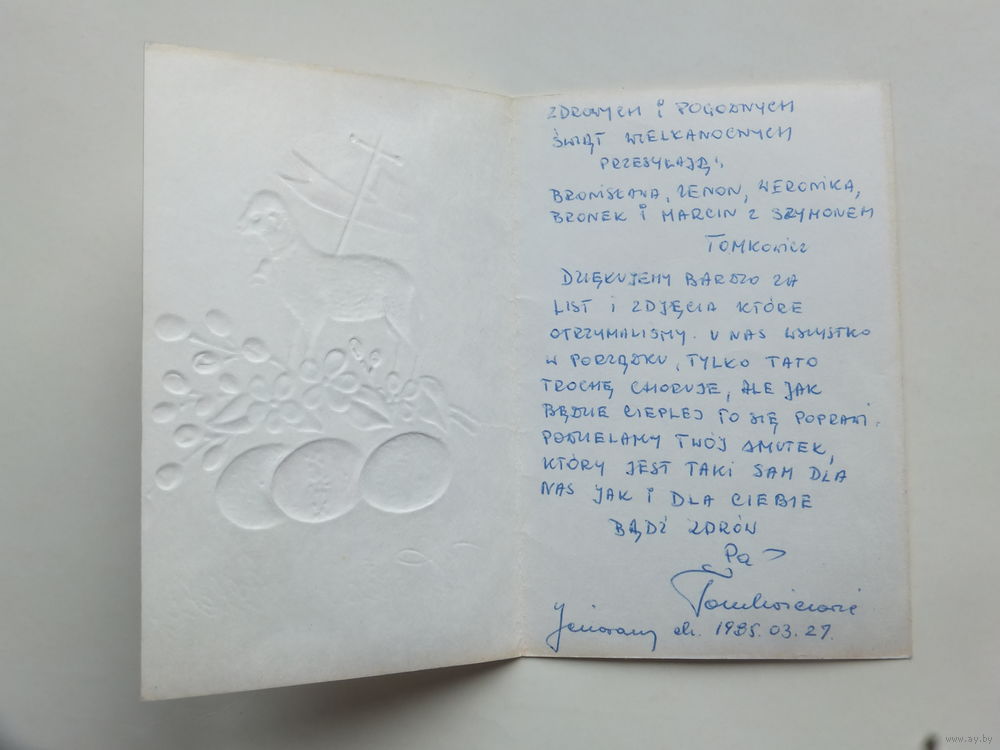 ZDROWYCH I POGODNYCH
ŚWIĄT WIELKANOCNYCH
PRZESYŁAJĄ:
BRONISŁAWA, ZENON, WERONIKA,
BRONEK I MARCIN Z SZYMONEM
TOMKOWICZ
DZIĘKUJEMY BARDZO ZA
LIST I ZDJĘCIA KTÓRE
OTRZYMALIŚMY. U NAS WSZYSTKO
W PORZĄDKU, TYLKO TATO
TROCHĘ CHORUJE, ALE JAK
BĘDZIE CIEPLEJ TO SIĘ POPRAWI.
PODZIELAMY TWÓJ SMUTEK,
KTÓRY JEST TAKI SAM DLA
NAS JAK I DLA CIEBIE
BĄDŹ ZDRÓW
Pa
Tomkowiczowie
Jeziorany dn. 1985.03.27.
www.ay.by